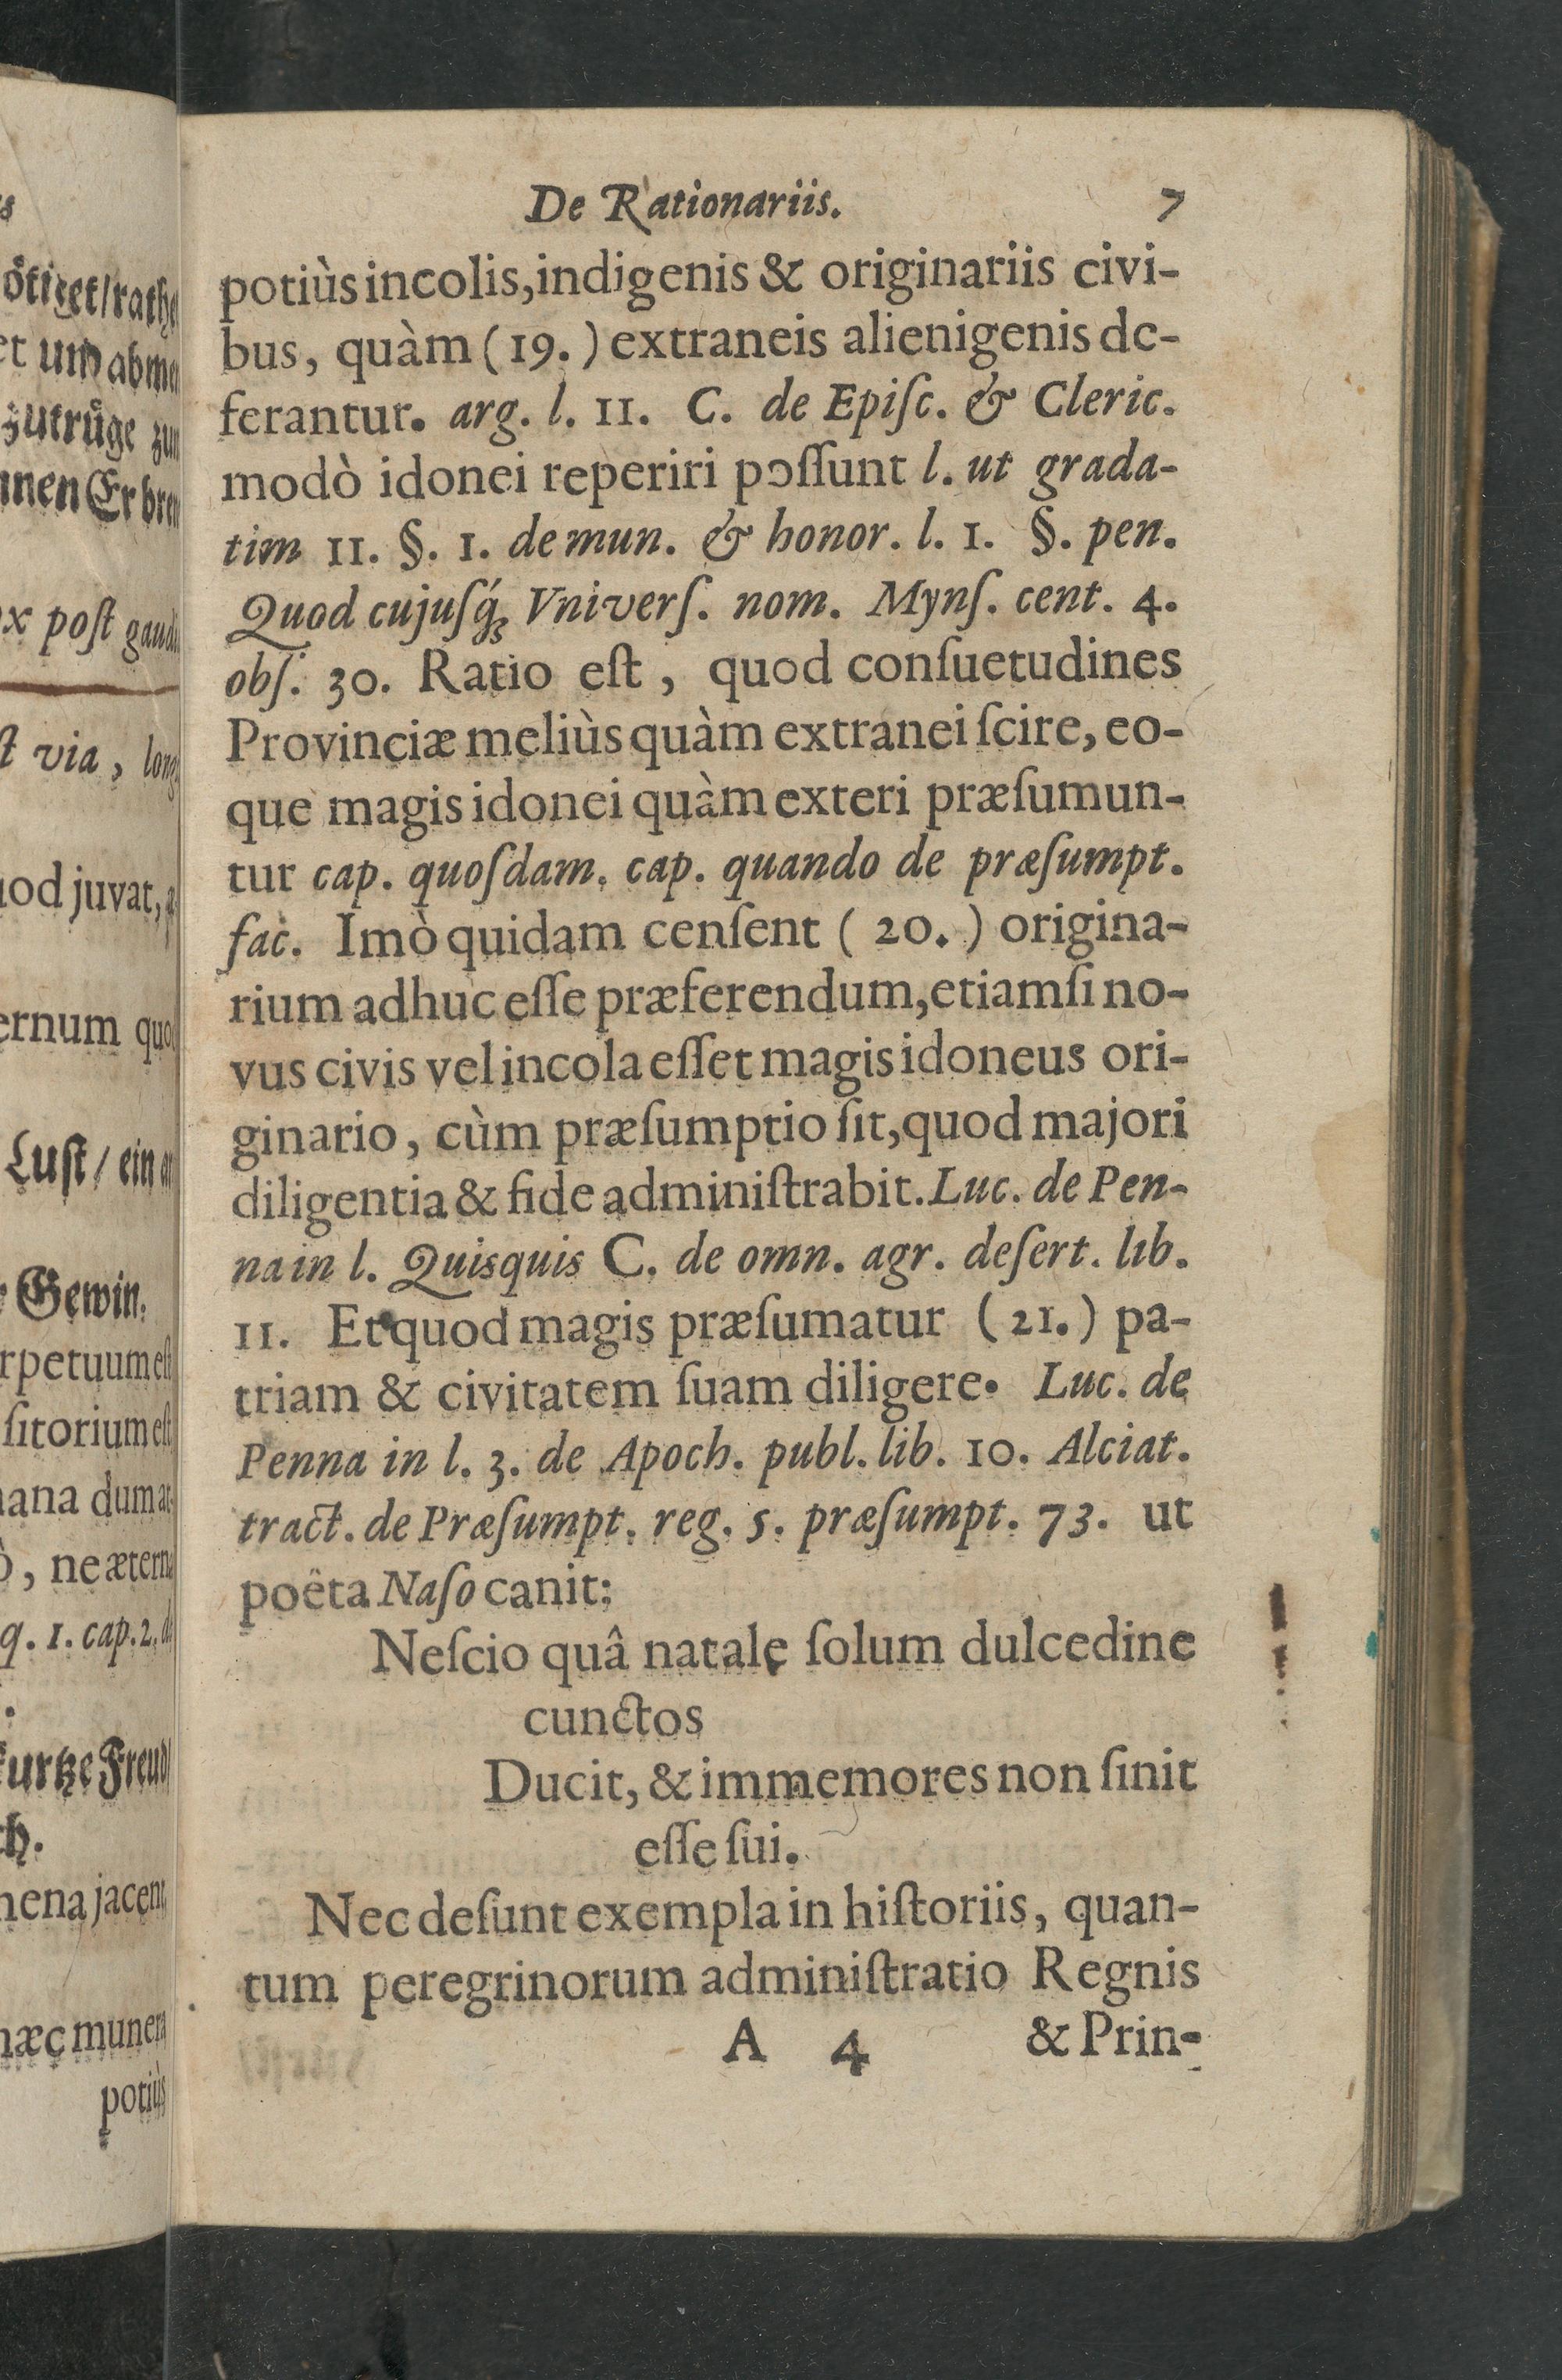 De Rationariis. 7
potiùs incolis, indigenis & originariis civi-
bus, quàm (19.) extraneis alienigenis de-
ferantur. arg. l. 11. C. de Epiſc. & Cleric.
modò idonei reperiri poſſunt l. ut grada-
tim 11. §. 1. de mun. & honor. l. 1. §. pen.
Quod cujuſq́ꝫ Vniverſ. nom. Mynſ. cent. 4.
obſ. 30. Ratio eſt, quod conſuetudines
Provinciæ meliùs quàm extranei ſcire, eo-
que magis idonei quàm exteri præſumun-
tur cap. quoſdam. cap. quando de præſumpt.
fac. Imò quidam cenſent (20.) origina-
rium adhuc eſſe præferendum, etiamſi no-
vus civis vel incola eſſet magis idoneus ori-
ginario, cùm præſumptio ſit, quod majori
diligentia & fide adminiſtrabit. Luc. de Pen-
na in l. Quisquis C. de omn. agr. deſert. lib.
11. Et quod magis præſumatur (21.) pa-
triam & civitatem ſuam diligere. Luc. de
Penna in l. 3. de Apoch. publ. lib. 10. Alciat.
tract. de Præſumpt. reg. 5. præſumpt. 73. ut
poêta Naſo canit:
Neſcio quâ natale ſolum dulcedine
cunctos
Ducit, & immemores non ſinit
eſſe ſui.
Nec deſunt exempla in hiſtoriis, quan-
tum peregrinorum adminiſtratio Regnis
A 4 & Prin-